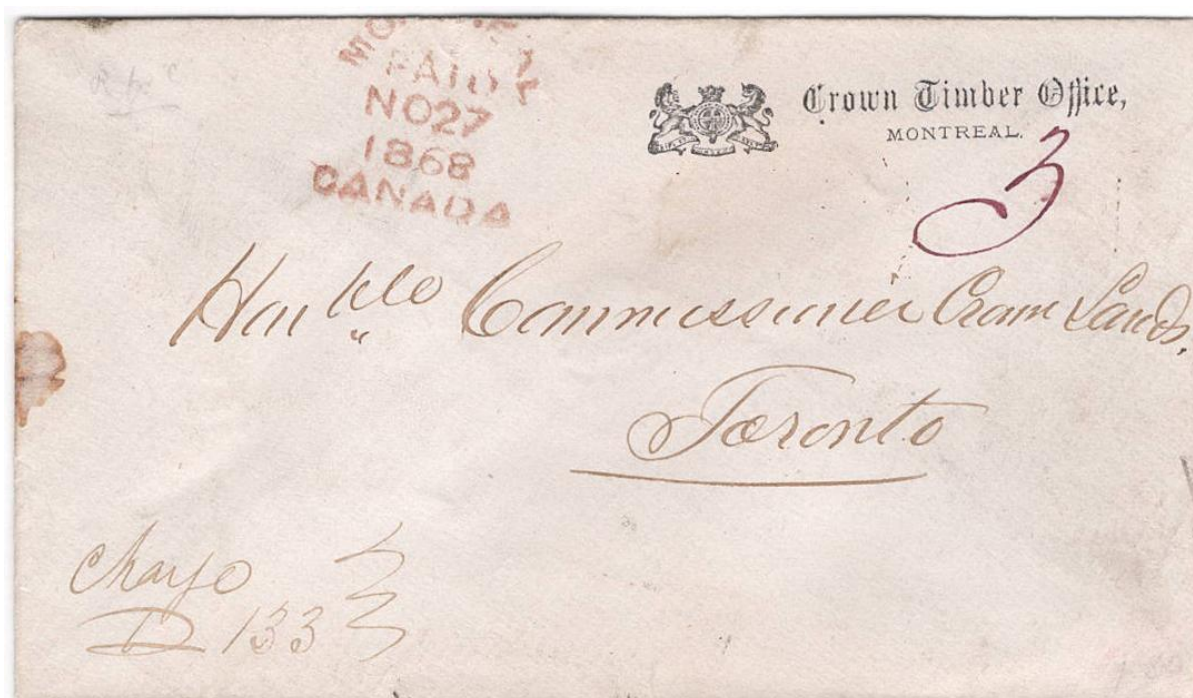 MONTREAL
PAID
NO27
1868
CANADA
Crown Timber Office,
MONTREAL.
3
Honble Commissioner Crown Lands,
Toronto
Charge
D 133